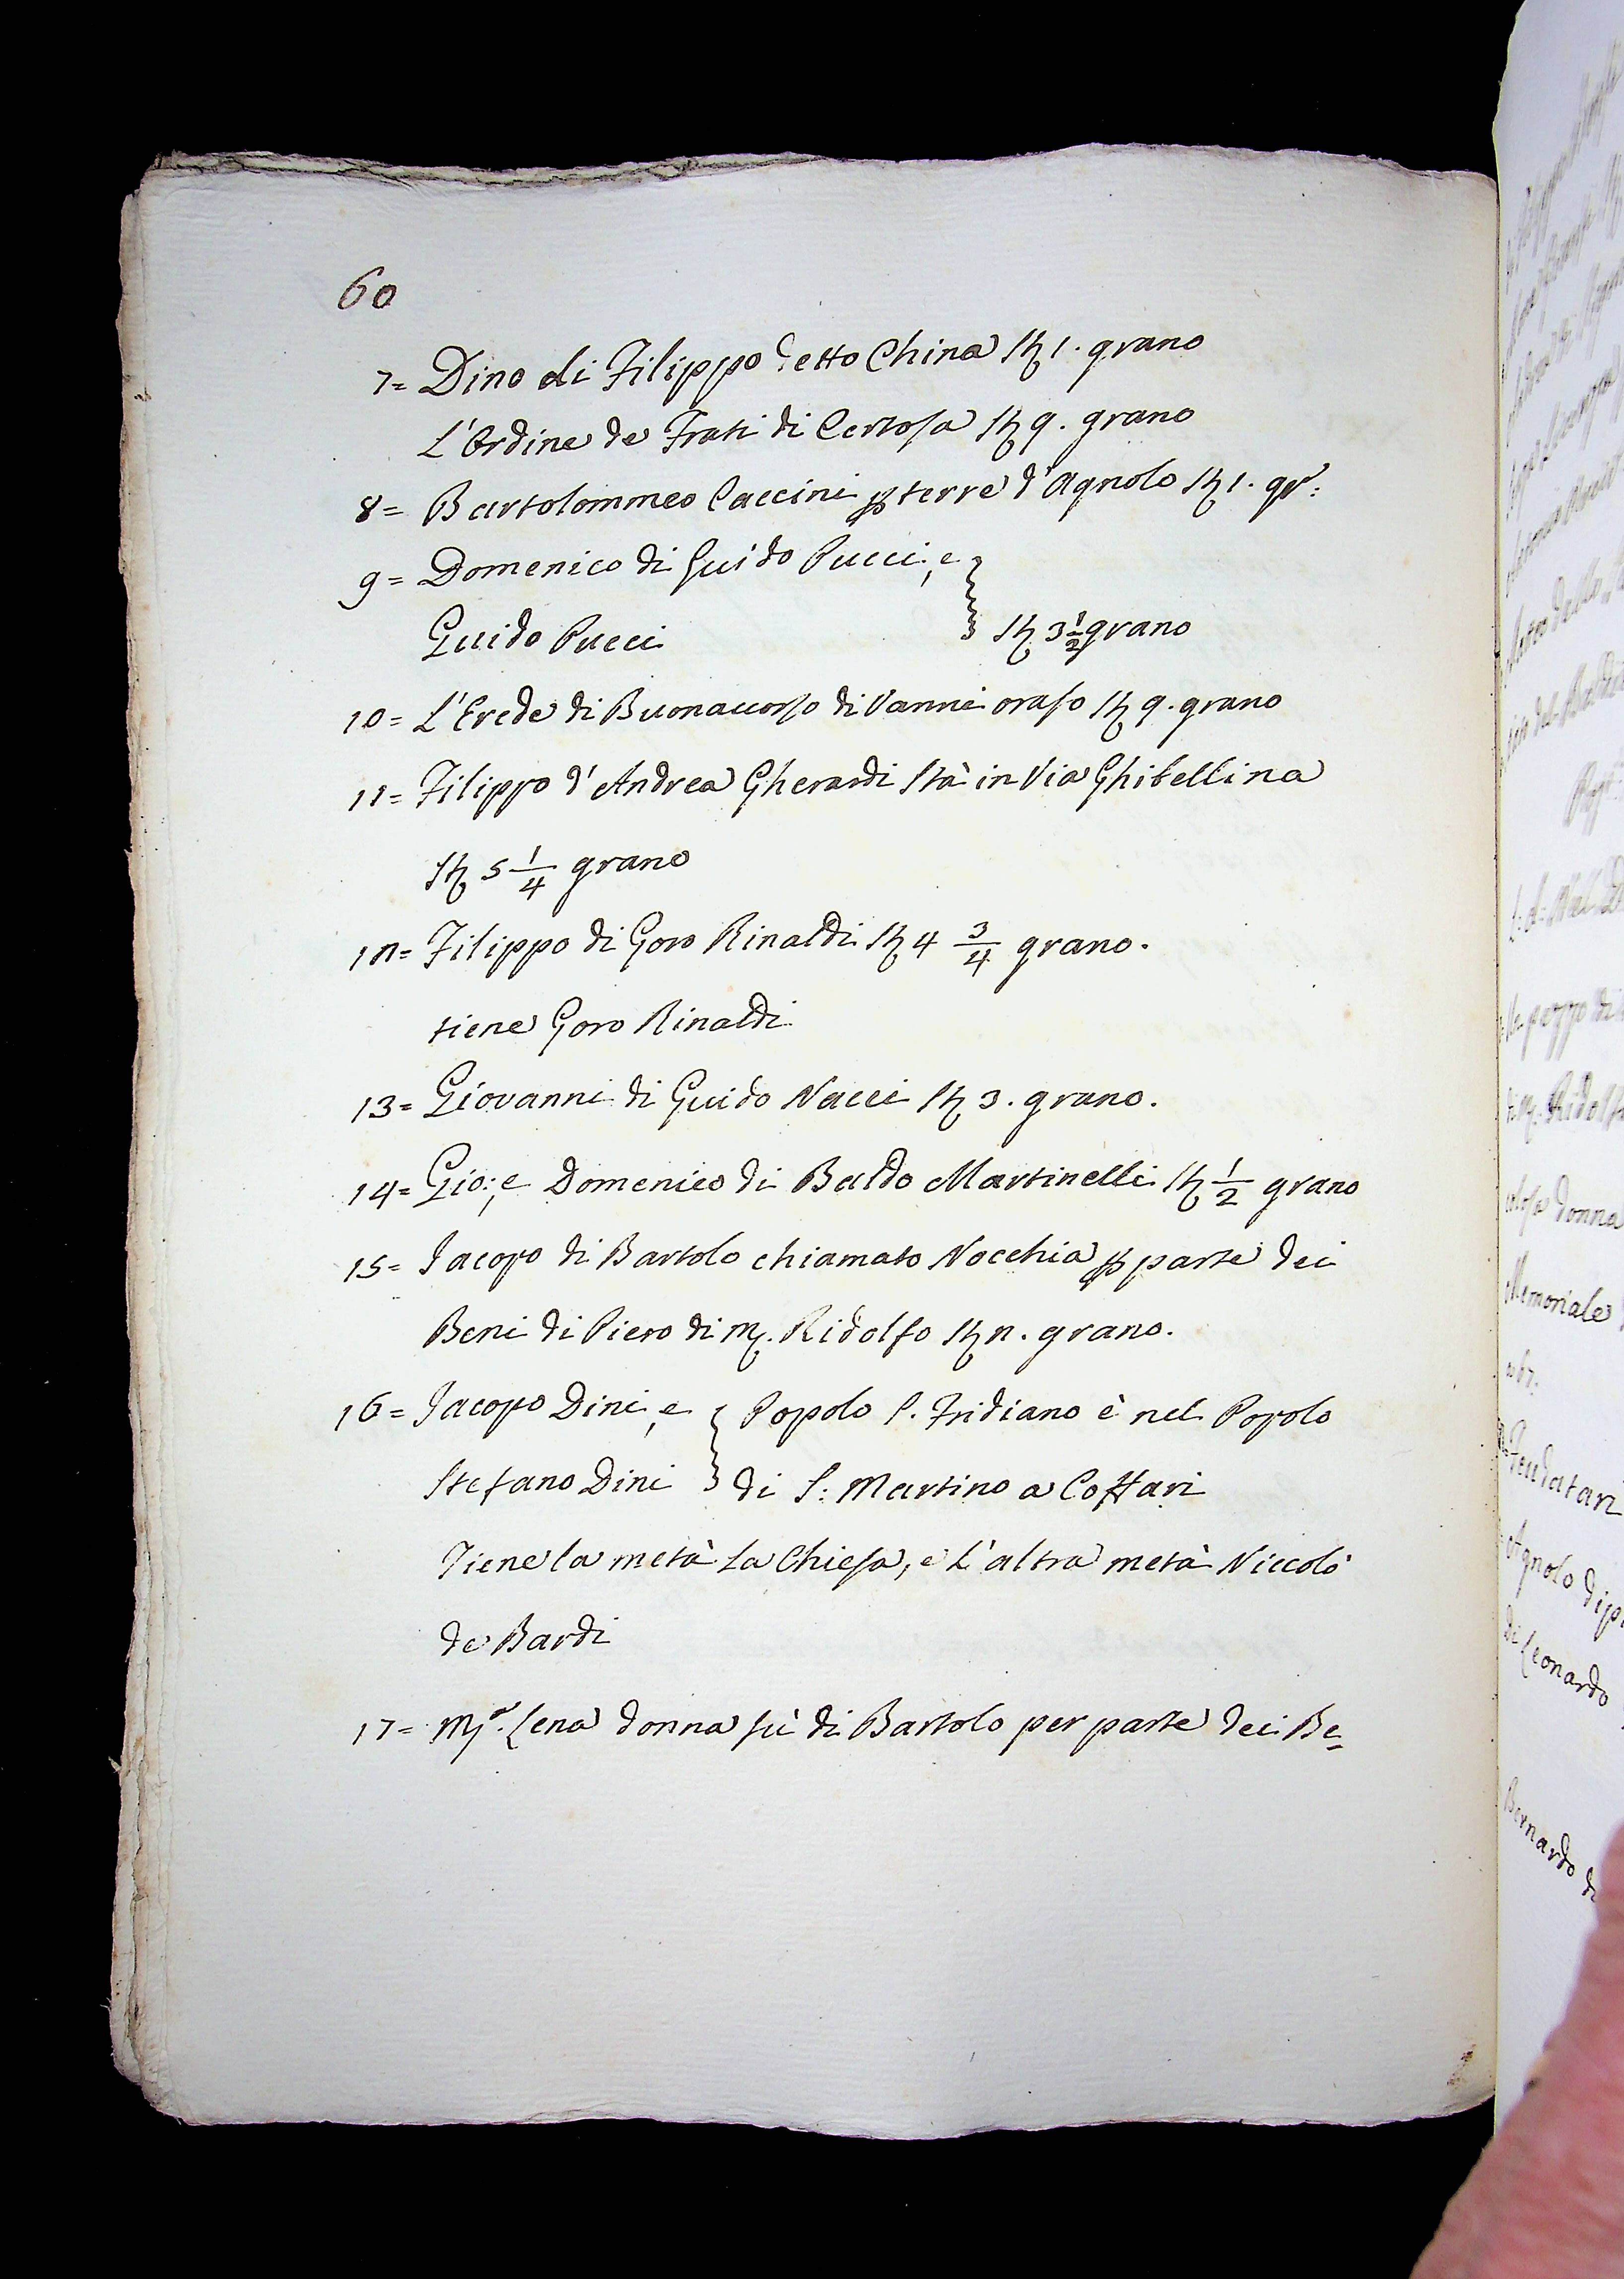 60
7= Dino di Filippo detto China St 1. grano
L'Ordine de Frati di Certosa St 9. grano
8= Bartolommeo Caccini p terre d'Agnolo St 1. gr:
9= Domenico di Guido Pucci, e
Guido Pucci } St 3 1/2 grano
10= L'Erede di Buonaccorso di Vanni orafo St 9. grano
11= Filippo d'Andrea Gherardi Stà in Via Ghibellina
St 5 1/4 grano
12= Filippo di Goro Rinaldi St 4 3/4 grano.
tiene Goro Rinaldi
13= Giovanni di Guido Nacci St 3. grano.
14= Gio:, e Domenico di Baldo Martinelli St 1/2 grano
15= Jacopo di Bartolo chiamato Nocchia p parte dei
Beni di Piero di M. Ridolfo St 2. grano.
16= Jacopo Dini, e } Popolo S. Fridiano è nel Popolo
Stefano Dini } di S: Martino a Coffari
Tiene la metà La Chiesa, e L'altra metà Niccolò
de Bardi
17= Mª. Lena donna fù di Bartolo per parte dei Be=